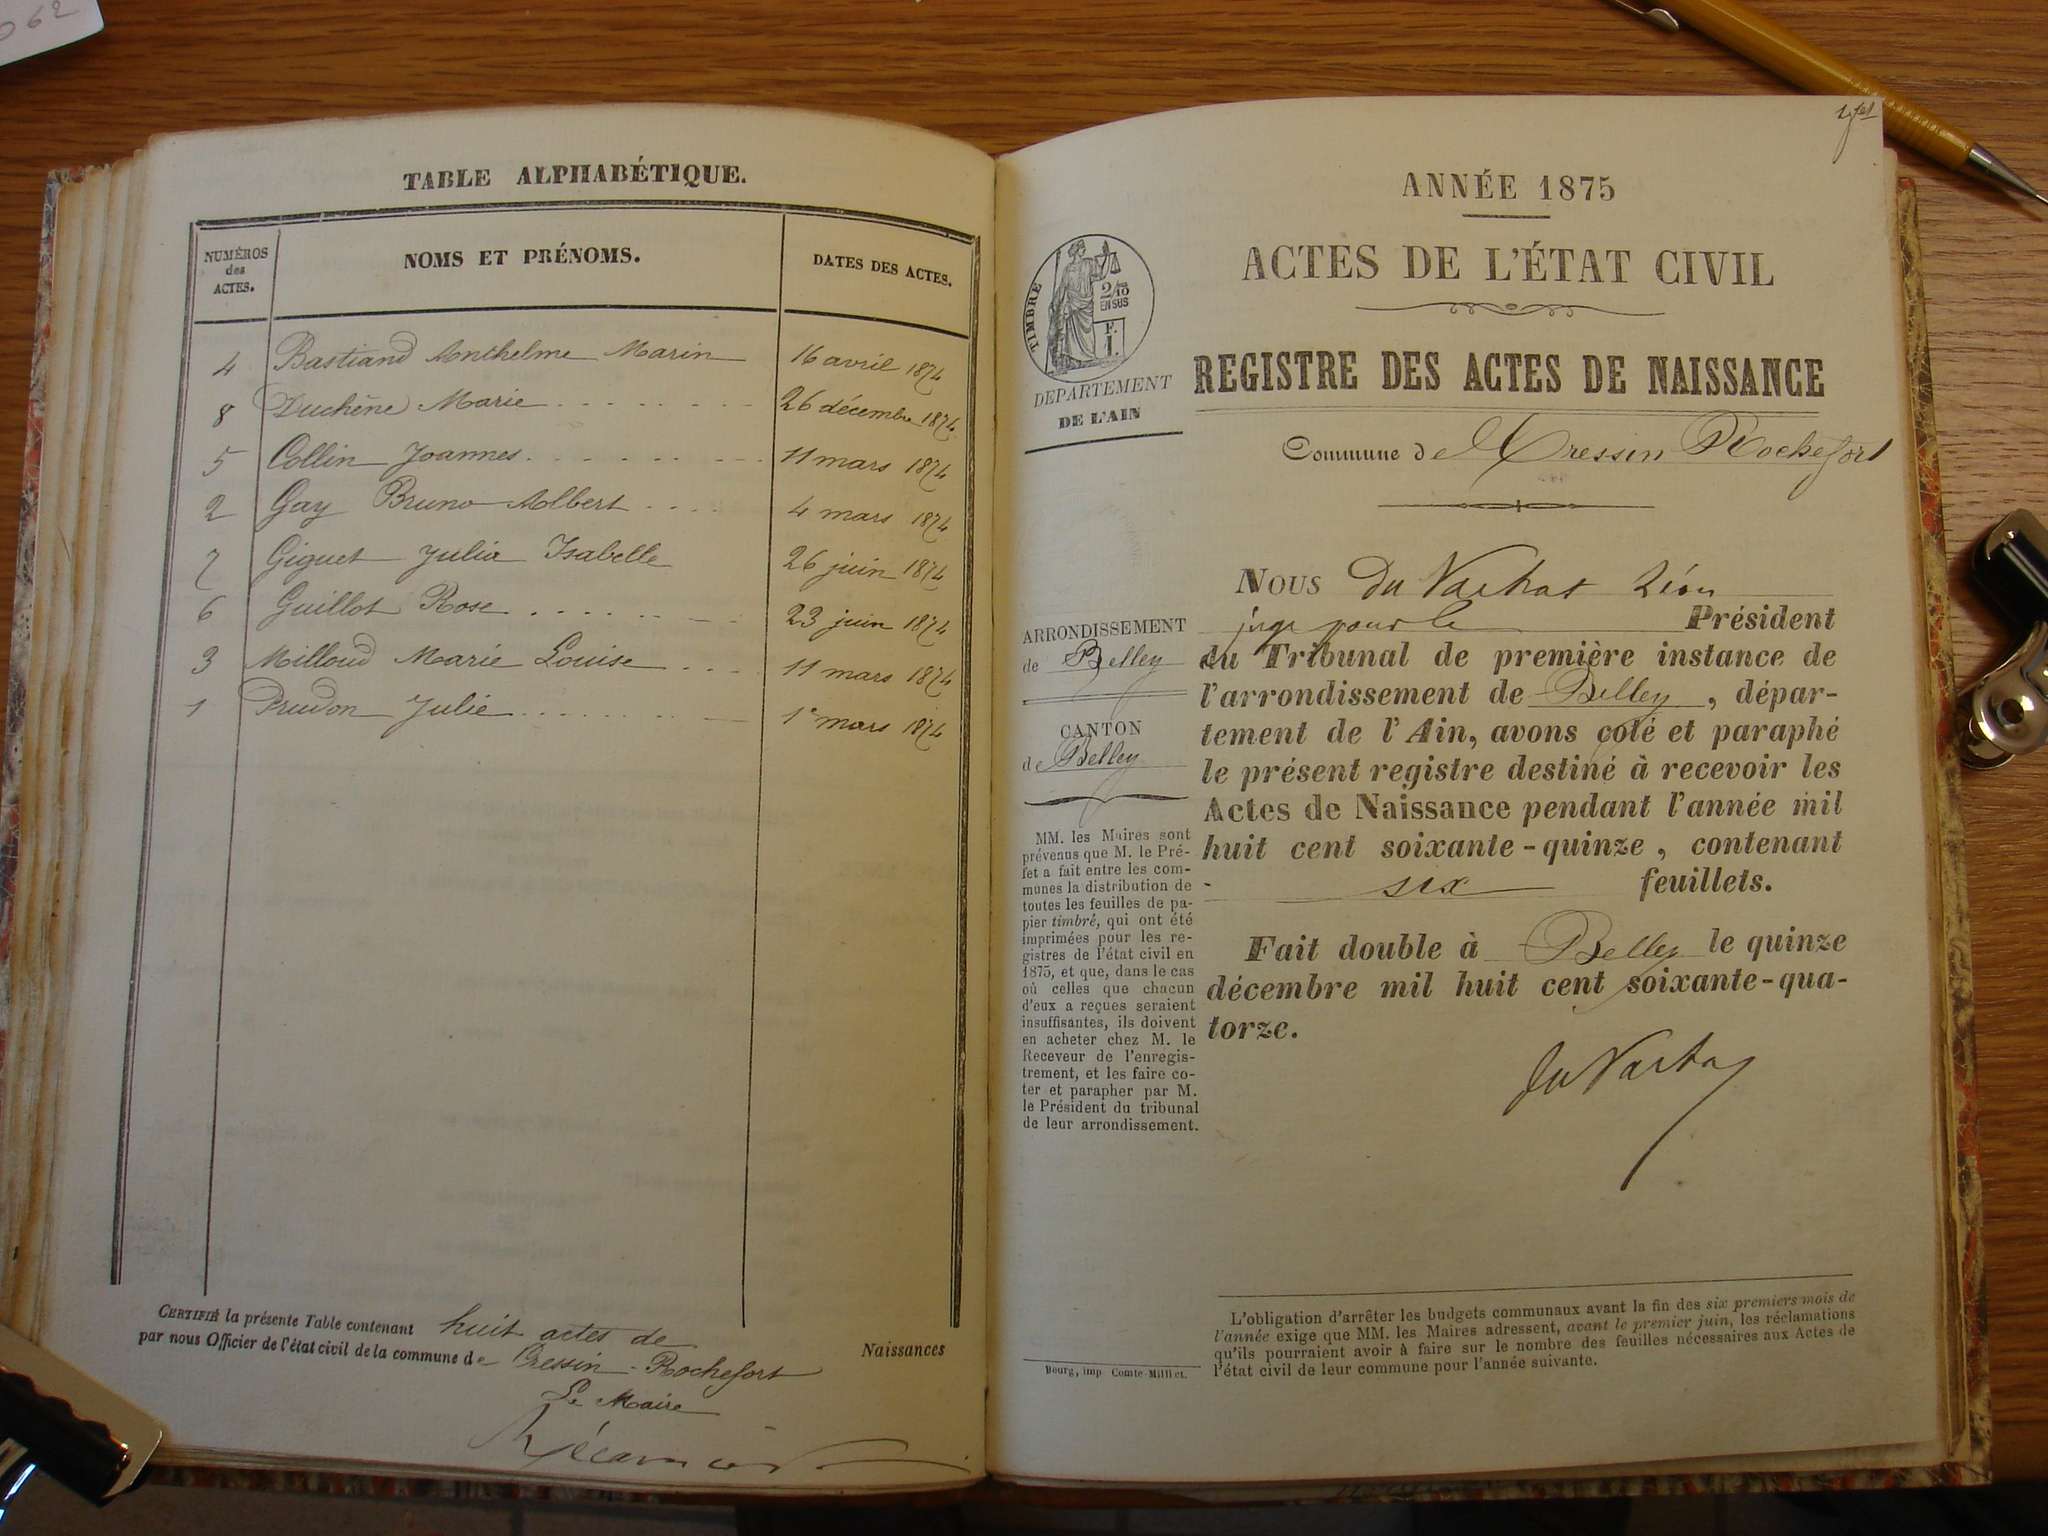 062
TABLE ALPHABÉTIQUE.
NUMÉROS des ACTES. NOMS ET PRÉNOMS. DATES DES ACTES.
4 Bastiand Anthelme Marin 16 avril 1874
8 Duchêne Marie 26 décembre 1874
5 Collin Joannes 11 mars 1874
2 Gay Bruno Albert 4 mars 1874
7 Giguet Julia Isabelle 26 juin 1874
6 Guillot Rose 23 juin 1874
3 Milloud Marie Louise 11 mars 1874
1 Prudon Julie 1er mars 1874
CERTIFIÉ la présente Table contenant huit actes de
par nous Officier de l'état civil de la commune de Cressin-Rochefort
Naissances
Le Maire
ANNÉE 1875
ACTES DE L'ÉTAT CIVIL
REGISTRE DES ACTES DE NAISSANCE
TIMBRE
2/10
EN SUS
F.
I.
DÉPARTEMENT
DE L'AIN
Commune de Cressin Rochefort
ARRONDISSEMENT
de Belley
CANTON
de Belley
MM. les Maires sont
prévenus que M. le Pré-
fet a fait entre les com-
munes la distribution de
toutes les feuilles de pa-
pier timbré, qui ont été
imprimées pour les re-
gistres de l'état civil en
1875, et que, dans le cas
où celles que chacun
d'eux a reçues seraient
insuffisantes, ils doivent
en acheter chez M. le
Receveur de l'enregis-
trement, et les faire co-
ter et parapher par M.
le Président du tribunal
de leur arrondissement.
NOUS Du Vachat Léon
juge pour le Président
du Tribunal de première instance de
l'arrondissement de Belley, dépar-
tement de l'Ain, avons coté et paraphé
le présent registre destiné à recevoir les
Actes de Naissance pendant l'année mil
huit cent soixante-quinze, contenant
six feuillets.
Fait double à Belley le quinze
décembre mil huit cent soixante-qua-
torze.
du Vachat
L'obligation d'arrêter les budgets communaux avant la fin des six premiers mois de
l'année exige que MM. les Maires adressent, avant le premier juin, les réclamations
qu'ils pourraient avoir à faire sur le nombre des feuilles nécessaires aux Actes de
l'état civil de leur commune pour l'année suivante.
Bourg, imp Comte-Milliet.